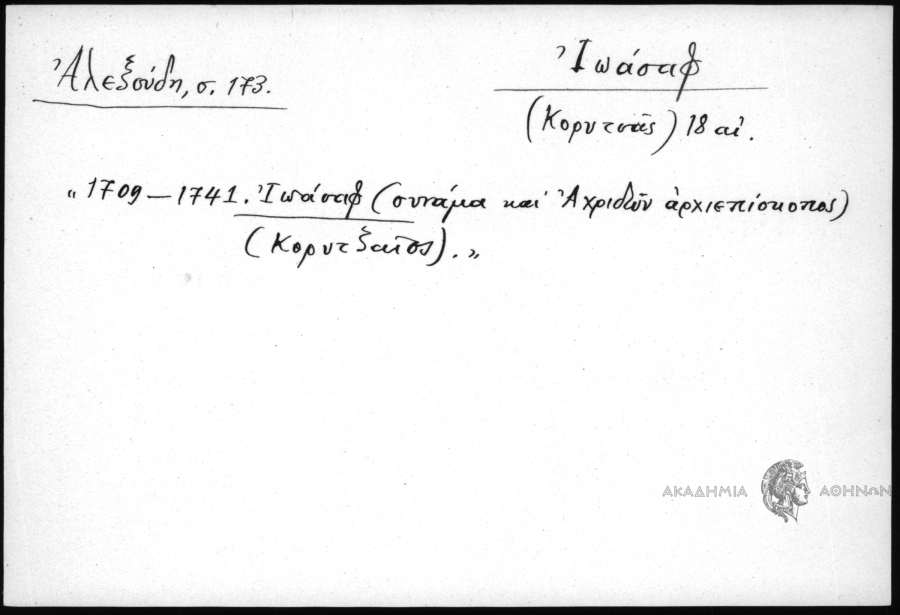 Ἀλεξούδη, σ. 173.
Ἰωάσαφ
(Κορυτσᾶς) 18 αἰ.
„1709–1741. Ἰωάσαφ (συνάμα καὶ Ἀχριδῶν ἀρχιεπίσκοπος)
(Κορυτξαῖος).„
ΑΚΑΔΗΜΙΑ ΑΘΗΝΩΝ